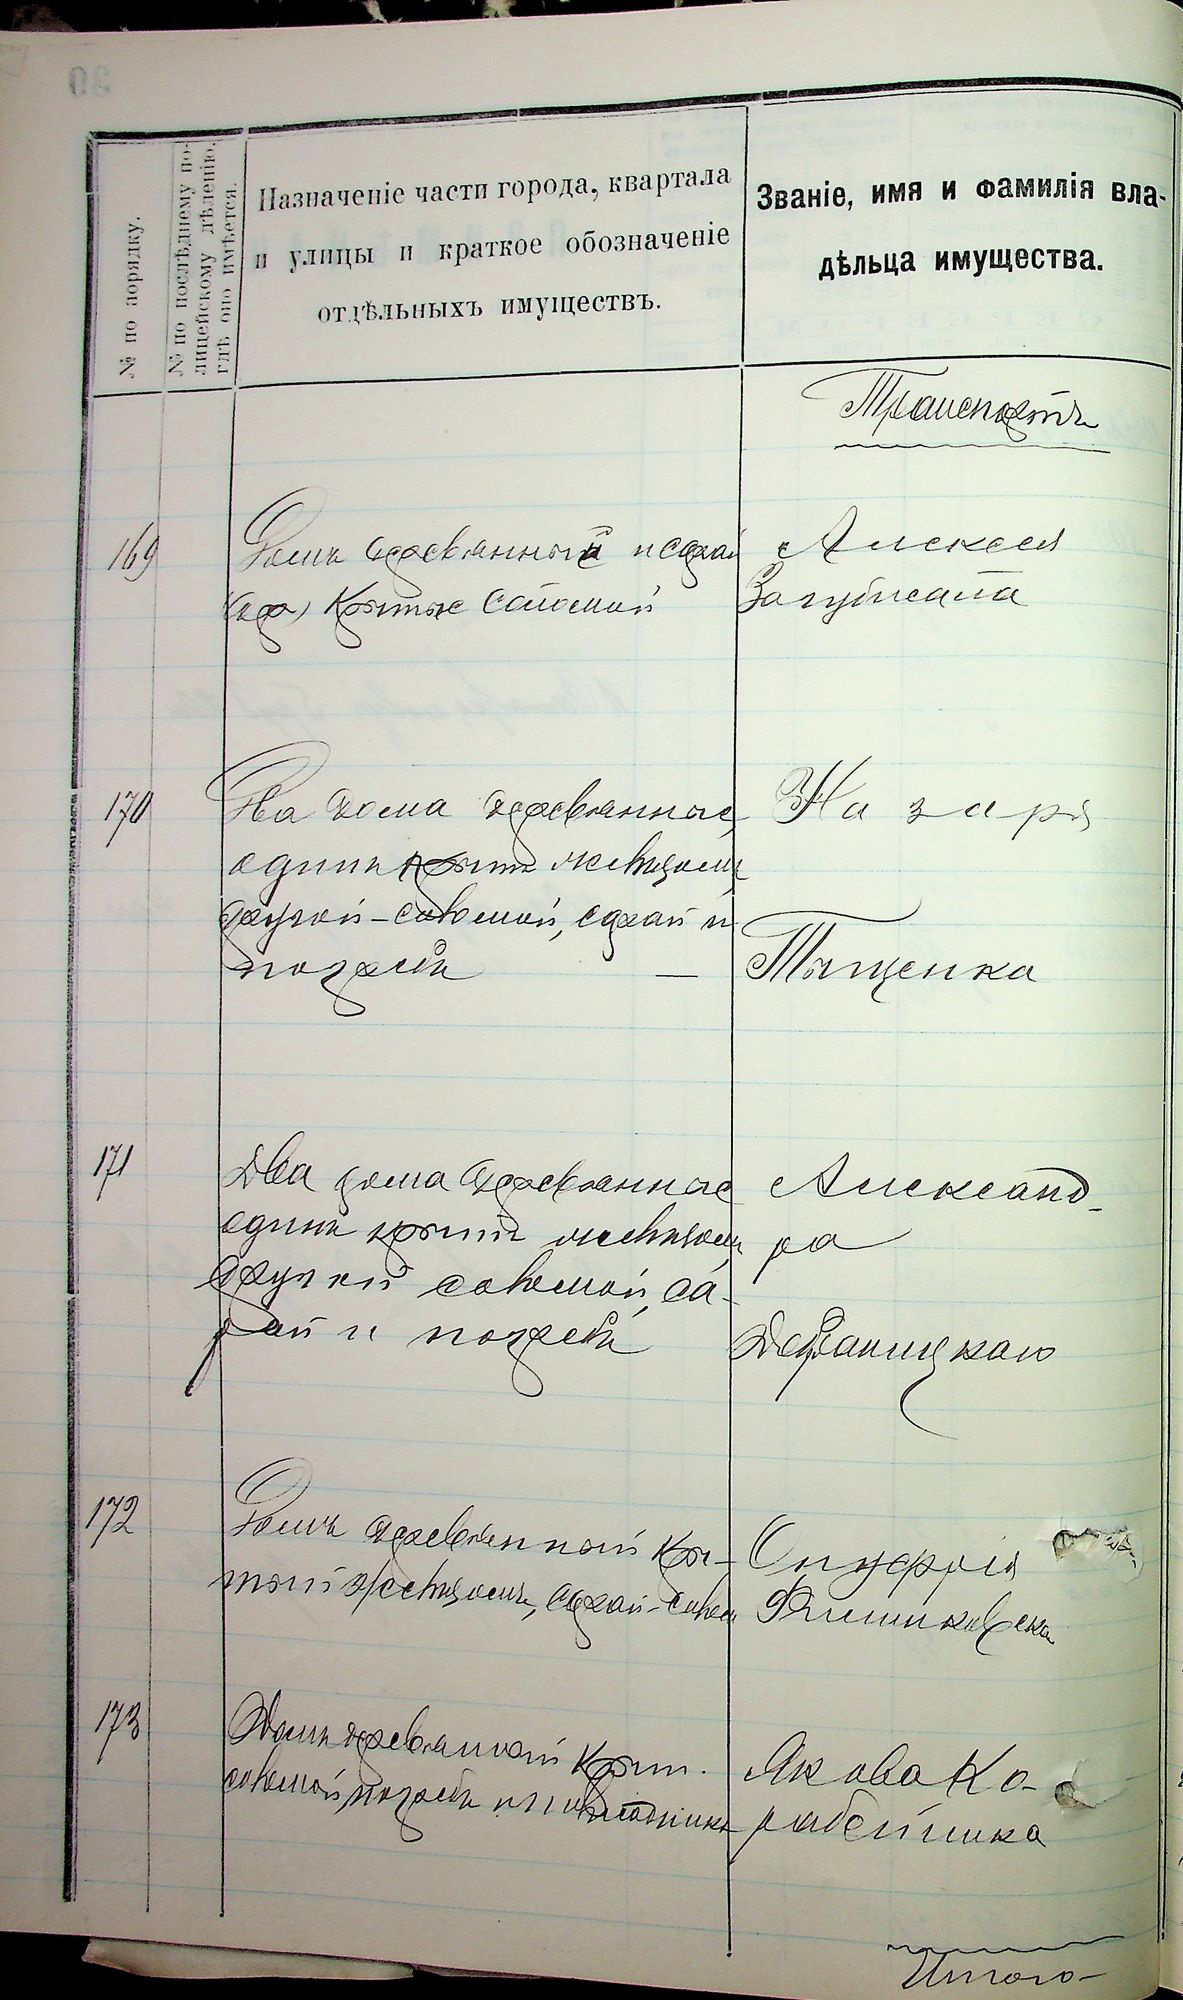 № по порядку.
№ по послѣднему по-
лицейскому дѣленію,
гдѣ оно имѣется.
Назначеніе части города, квартала
и улицы и краткое обозначеніе
отдѣльныхъ имуществъ.
Званіе, имя и фамилія вла-
дѣльца имущества.
Транспортъ
169
Домъ деревянный и сарай
крытые соломой
Алексея
Загубисала
170
Два дома деревянные,
одинъ крытъ жестью
другой - соломой, сарай и
погребъ —
Назара
Тыщенка
171
Два дома деревянные
одинъ крытъ
другой соломой, са-
рай и погребъ
Александ-
ра
172
Домъ деревянный кры-
тый сарай - солом
Онуфрія
173
Домъ деревянный крыт.
соломой погребъ и
Якова Ко-
рабейника
Итого -